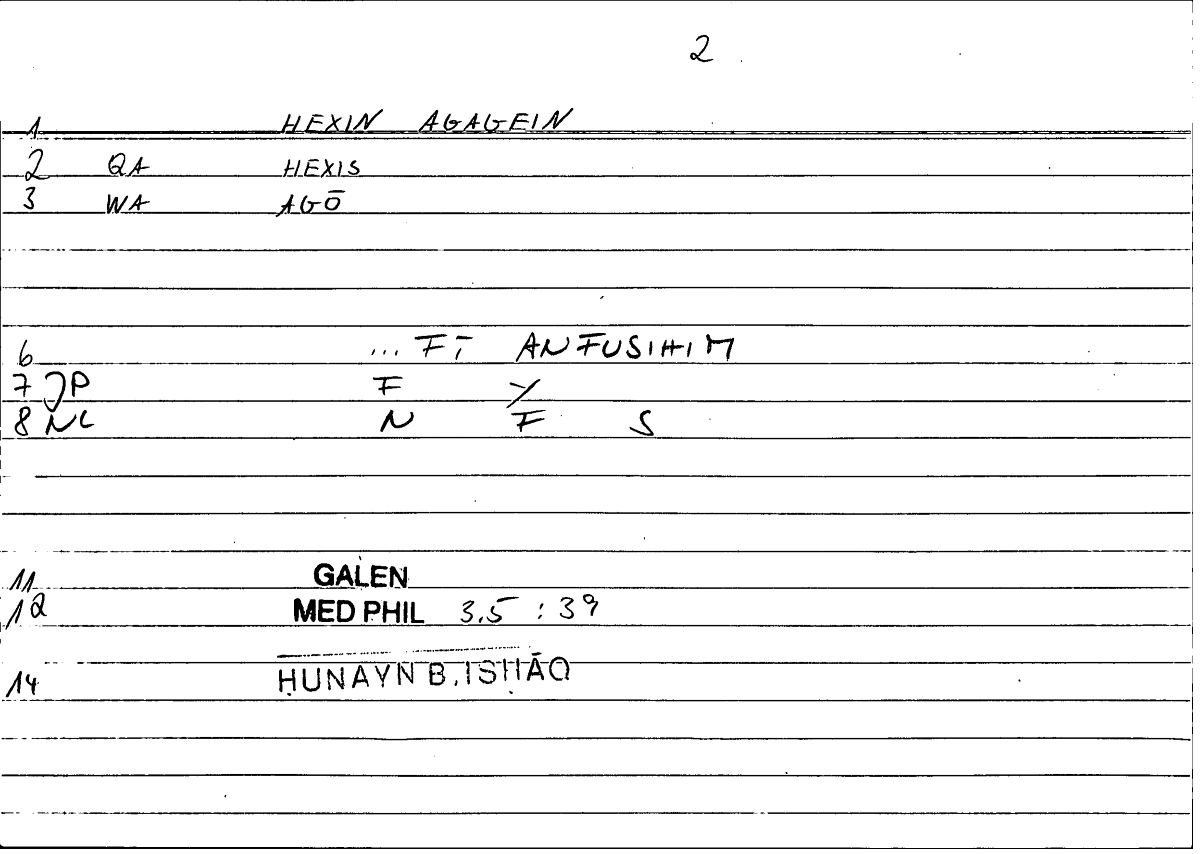 2
1 HEXIN AGAGEIN
2 QA HEXIS
3 WA AGŌ
6 ... FĪ ANFUSIHIM
7 JP F Y
8 NL N F S
11 GALEN
12 MED PHIL 3.5 : 39
14 ḤUNAYN B. ISḤĀQ